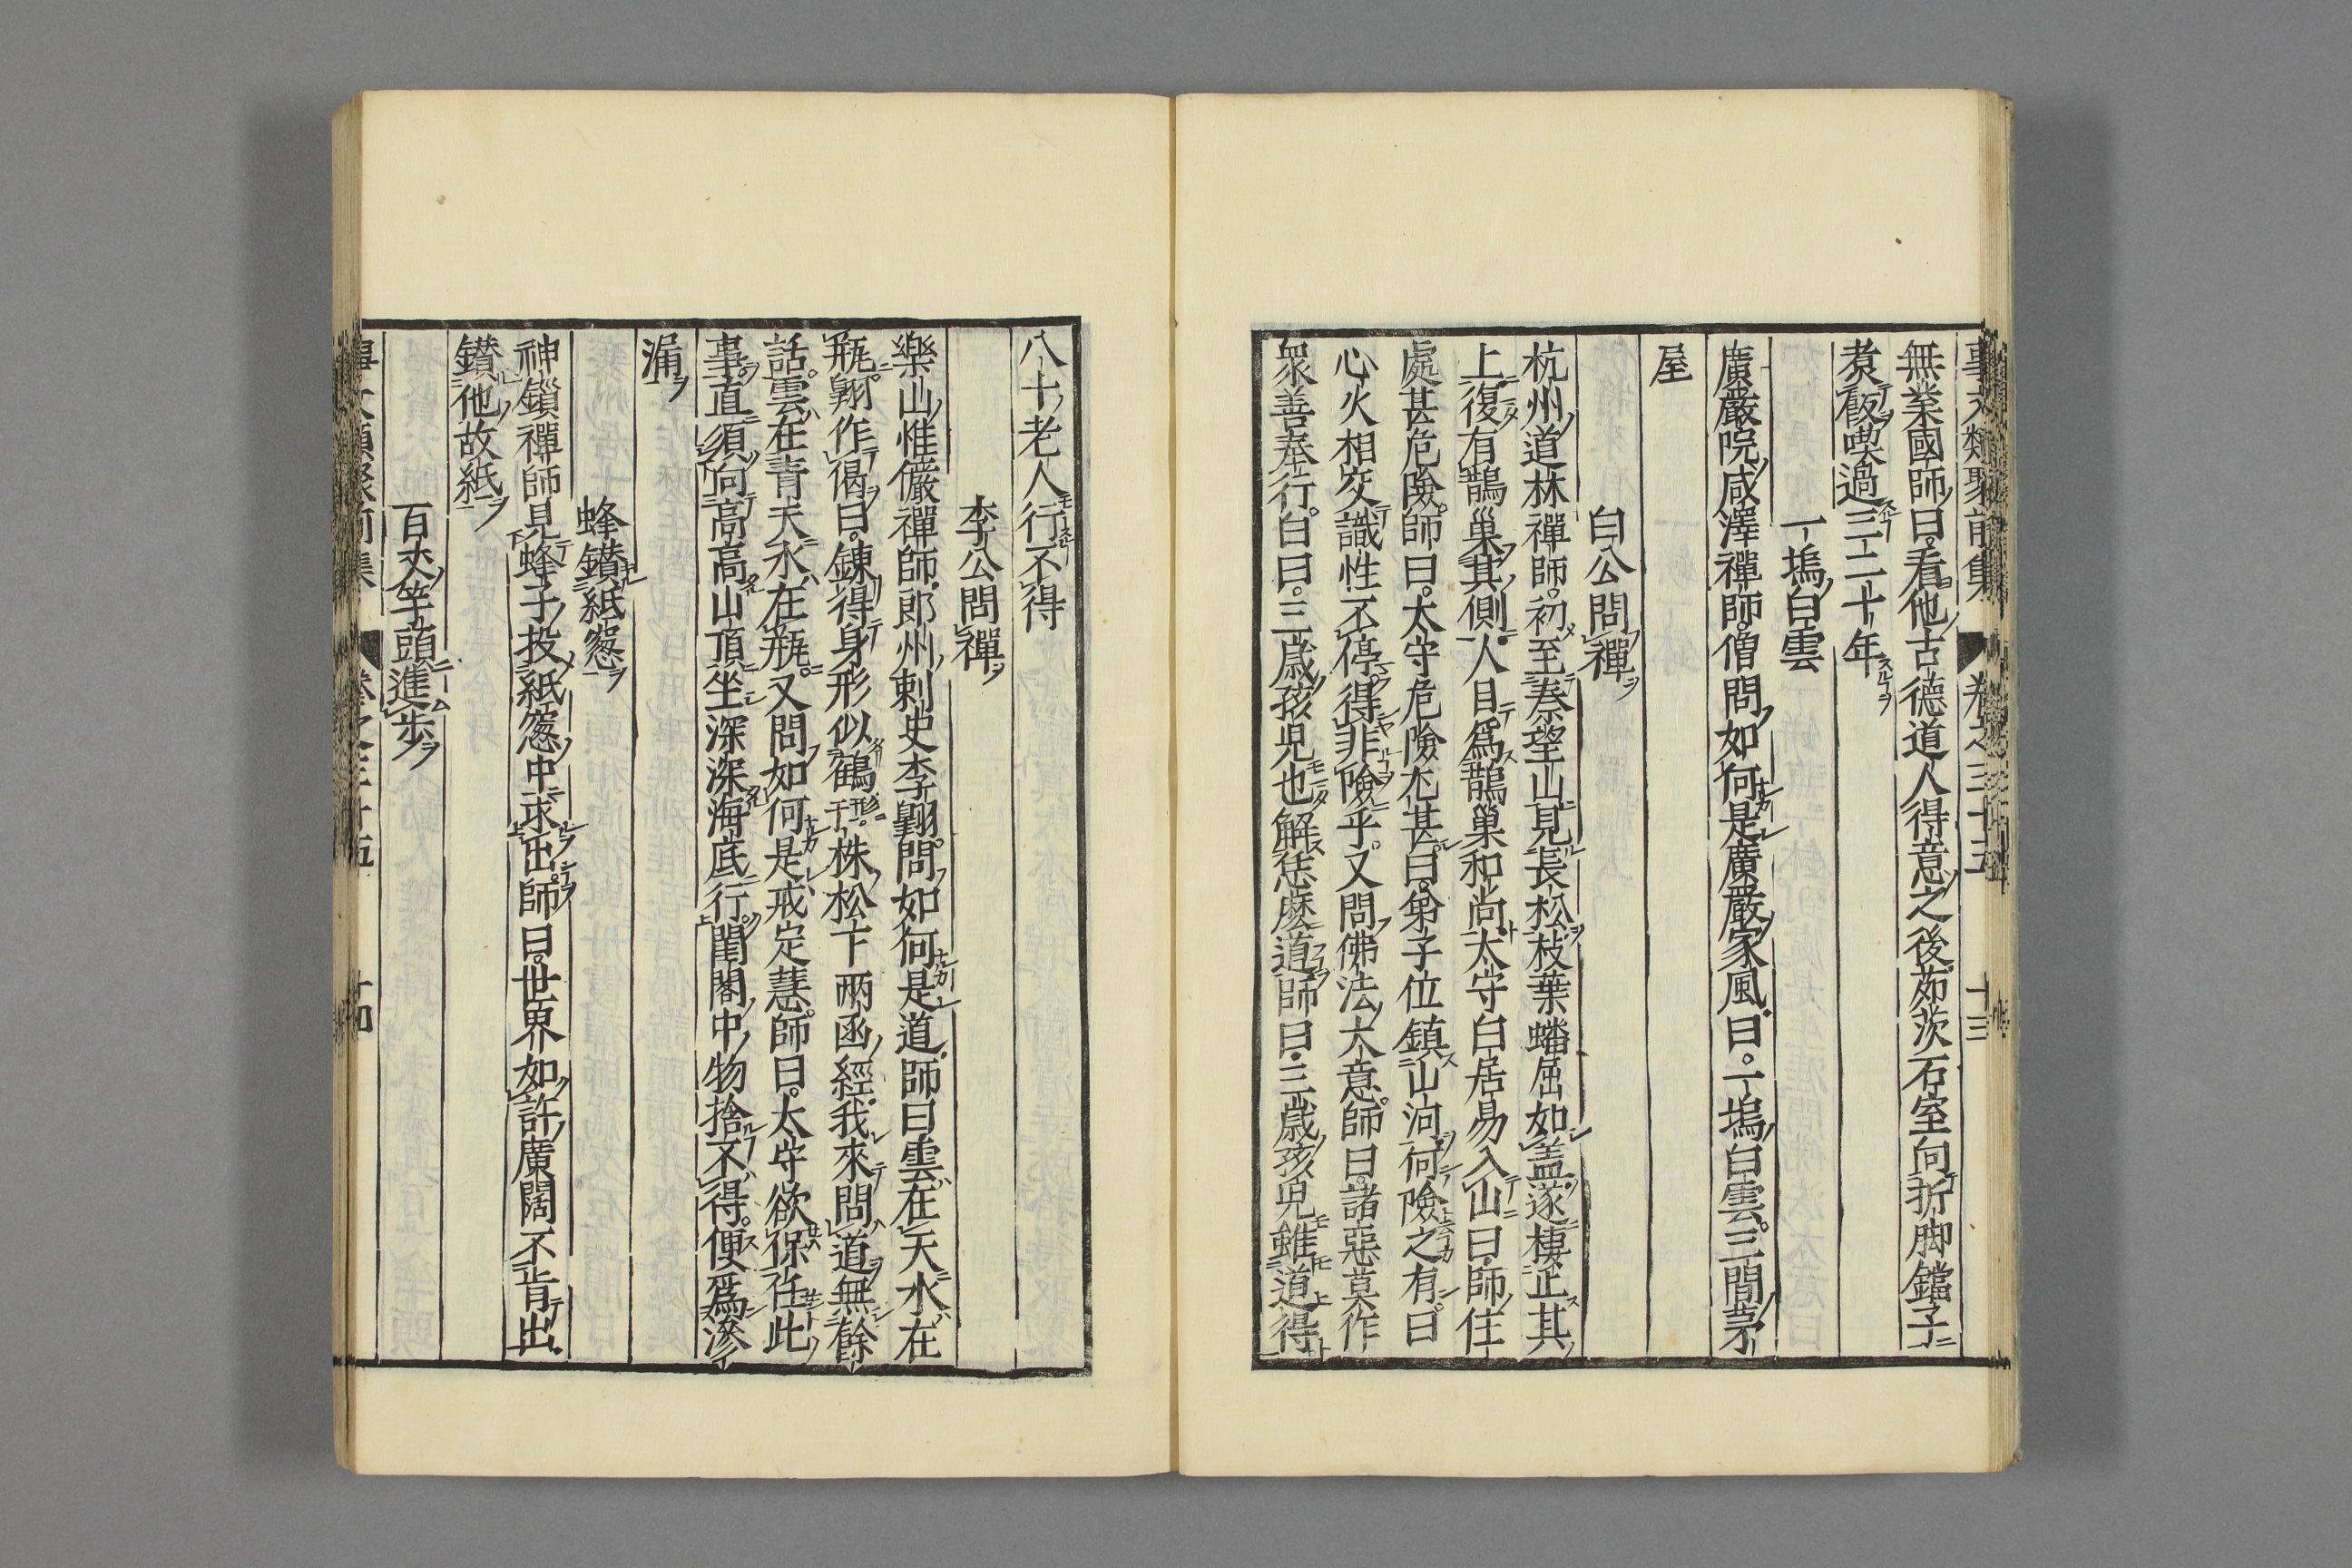 事文類聚前集 卷之三十五 十三
無業國師曰看他古德道人得意之後茆茨石室向折脚鐺子
煑飯喫過三二十年
一塢白雲
廣嚴院咸澤禪師僧問如何是廣嚴家風曰一塢白雲三間茅
屋
白公問禪
杭州道林禪師初至秦望山見長松枝葉蟠屈如盖遂棲止其
上復有鵲巢其側人目爲鵲巢和尚太守白居易入山曰師住
處甚危險師曰太守危險尤甚曰弟子位鎮山河何險之有曰
心火相交識性不停得非險乎又問佛法大意師曰諸惡莫作
衆善奉行白曰三歲孩児也解恁麽道師曰三歲孩児雖道得
八十老人行不得
李公問禪
樂山惟儼禪師郎州刺史李翺問如何是道師曰雲在天水在
瓶翺作偈曰錬得身形似鶴形千株松下兩函經我來問道無餘
話雲在青天水在瓶又問如何是戒定慧師曰太守欲保任此
事直須向高高山頂坐深深海底行閨閣中物捨不得便爲滲
漏
蜂鑚紙窓
神鎻禪師見蜂子投紙窓中求出師曰世界如許廣闊不肯出
鑚他故紙
百丈竿頭進歩
事文類聚前集 卷之三十五 十四